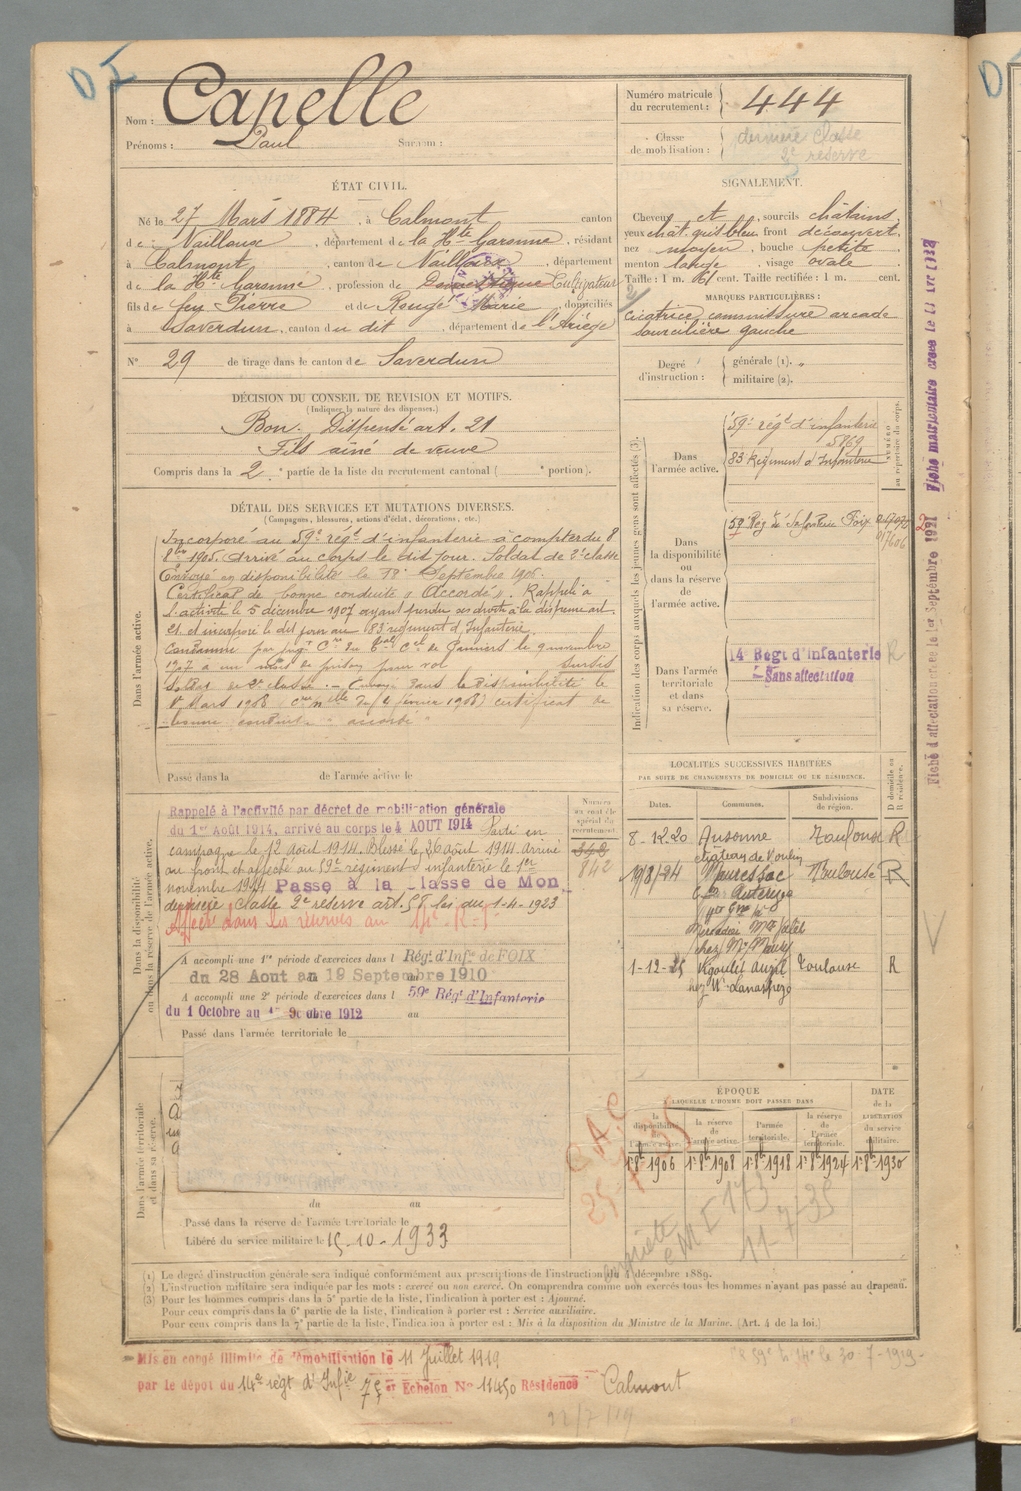 D I
Nom : Capelle
Prénoms : Paul Surnom :
Numéro matricule du recrutement : 444
Classe de mobilisation : dernière classe 2e réserve
ÉTAT CIVIL.
Né le 27 Mars 1884, à Calmont canton
de Nailloux, département de la Hte Garonne, résidant
à Calmont, canton de Nailloux, département
de la Hte Garonne, profession de Cultivateur
fils de feu Pierre et de Rougé Marie, domiciliés
à Saverdun, canton du dit, département de l'Ariège
N° 29 de tirage dans le canton de Saverdun
SIGNALEMENT.
Cheveux et, sourcils châtains,
yeux chât. gris bleu, front découvert,
nez moyen, bouche petite
menton large, visage ovale
Taille : 1 m. 61 cent. Taille rectifiée : 1 m. cent.
MARQUES PARTICULIÈRES :
Cicatrice commissure arcade
sourcilière gauche
Degré d'instruction : générale (1). "
militaire (2).
DÉCISION DU CONSEIL DE REVISION ET MOTIFS.
(Indiquer la nature des dispenses.)
Bon. Dispensé art. 21
Fils aîné de veuve
Compris dans la 2e partie de la liste du recrutement cantonal ( e portion).
DÉTAIL DES SERVICES ET MUTATIONS DIVERSES.
(Campagnes, blessures, actions d'éclat, décorations, etc.)
Dans l'armée active.
Incorporé au 59e régt d'infanterie à compter du 8
8bre 1905. Arrivé au corps le dit jour. Soldat de 2e classe
Envoyé en disponibilité le 18 Septembre 1906.
Certificat de bonne conduite " Accordé ". Rappelé à
l'activité le 5 décembre 1907 ayant perdu ses droits à la dispense art.
21 et incorporé le dit jour au 83 régiment d'Infanterie.
Condamné par jugt Cre du Cel de Pamiers le 9 novembre
1907 à un mois de prison pour vol sursis
Soldat de 2e classe. Envoyé dans la Disponibilité le
8 Mars 1908 certificat de
bonne conduite " accordé "
Passé dans la de l'armée active le
Indication des corps auxquels les jeunes gens sont affectés (3).
NUMÉRO au répertoire du corps.
Dans l'armée active.
59e régt d'infanterie
5869
83 Régiment d'Infanterie
Dans la disponibilité ou dans la réserve de l'armée active.
59e Régt de Infanterie Foix
Dans l'armée territoriale et dans sa réserve.
14e Régt d'infanterie R
Sans affectation
LOCALITÉS SUCCESSIVES HABITÉES
PAR SUITE DE CHANGEMENTS DE DOMICILE OU DE RÉSIDENCE.
Dates. Communes. Subdivisions de région. D domicile ou R résidence.
8.12.20 Ausonne Toulouse R
19/8/24 Mauressac Toulouse R
1-12-25 Toulouse R
Dans la disponibilité ou dans la réserve de l'armée active.
Rappelé à l'activité par décret de mobilisation générale
du 1er Août 1914, arrivé au corps le 4 AOUT 1914 Parti en
campagne le 12 août 1914. Blessé le 26 août 1914. Arrivé
au front et affecté au 59e régiment d'infanterie le 1er
novembre 1914 Passé à la classe de Mon
dernière classe 2e réserve art. 58 loi du 1-4-1923
Affecté dans les réserves au 14e R.I.
Numéro au contrôle spécial du recrutement
842
A accompli une 1re période d'exercices dans l Régt d'Infie de FOIX
du 28 Aout au 19 Septembre 1910
A accompli une 2e période d'exercices dans l 59e Régt d'Infanterie
du 1 Octobre au Octobre 1912 au
Passé dans l'armée territoriale le
Dans l'armée territoriale et dans sa réserve.
du au
Passé dans la réserve de l'armée territoriale le
Libéré du service militaire le 15-10-1933
ÉPOQUE
A LAQUELLE L'HOMME DOIT PASSER DANS
la disponibilité de l'armée active. la réserve de l'armée active. l'armée territoriale. la réserve de l'armée territoriale. DATE de la LIBÉRATION du service militaire.
1er 8bre 1906 1er 8bre 1908 1er 8bre 1918 1er 8bre 1924 1er 8bre 1930
11-7-35
(1) Le degré d'instruction générale sera indiqué conformément aux prescriptions de l'instruction du 4 décembre 1889.
(2) L'instruction militaire sera indiquée par les mots : exercé ou non exercé. On comprendra comme non exercés tous les hommes n'ayant pas passé au drapeau.
(3) Pour les hommes compris dans la 5e partie de la liste, l'indication à porter est : Ajourné.
Pour ceux compris dans la 6e partie de la liste, l'indication à porter est : Service auxiliaire.
Pour ceux compris dans la 7e partie de la liste, l'indication à porter est : Mis à la disposition du Ministre de la Marine. (Art. 4 de la loi.)
Mis en congé illimité de démobilisation le 11 Juillet 1919
par le dépôt du 14e régt d'Infie 7e Echelon N° 11450 Résidence Calmont
22/7/19